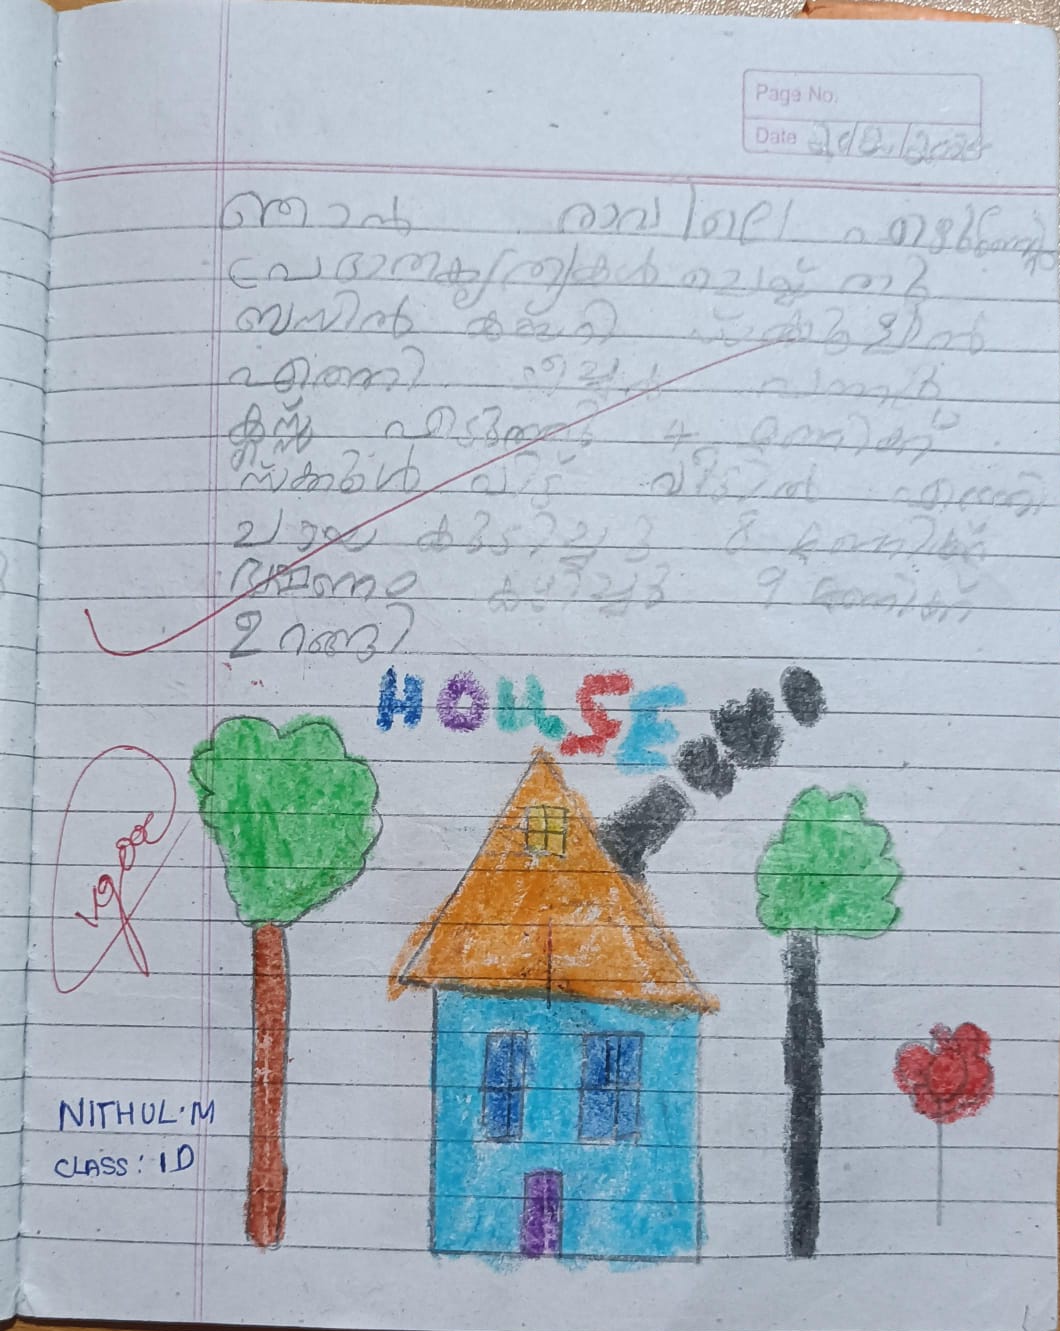 Page No.
Date
ഞാൻ രാവിലെ എഴുന്നേറ്റു
പ്രഭാതകൃത്യകൾ ചെയ്തു
ബസിൽ കയറി സ്കൂളിൽ
എത്തി ടീച്ചർ വന്നു
ക്ലസ്സ് എടുത്തു 4 മണിക്ക്
സ്ക്കൂൾ വിട്ട് വീട്ടിൽ എത്തി
ചായ കുടിച്ചു 8 മണിക്ക്
ഭക്ഷണം കഴിച്ചു 9 മണിക്ക്
ഉറങ്ങി
HOUSE
NITHUL.M
CLASS: 1D